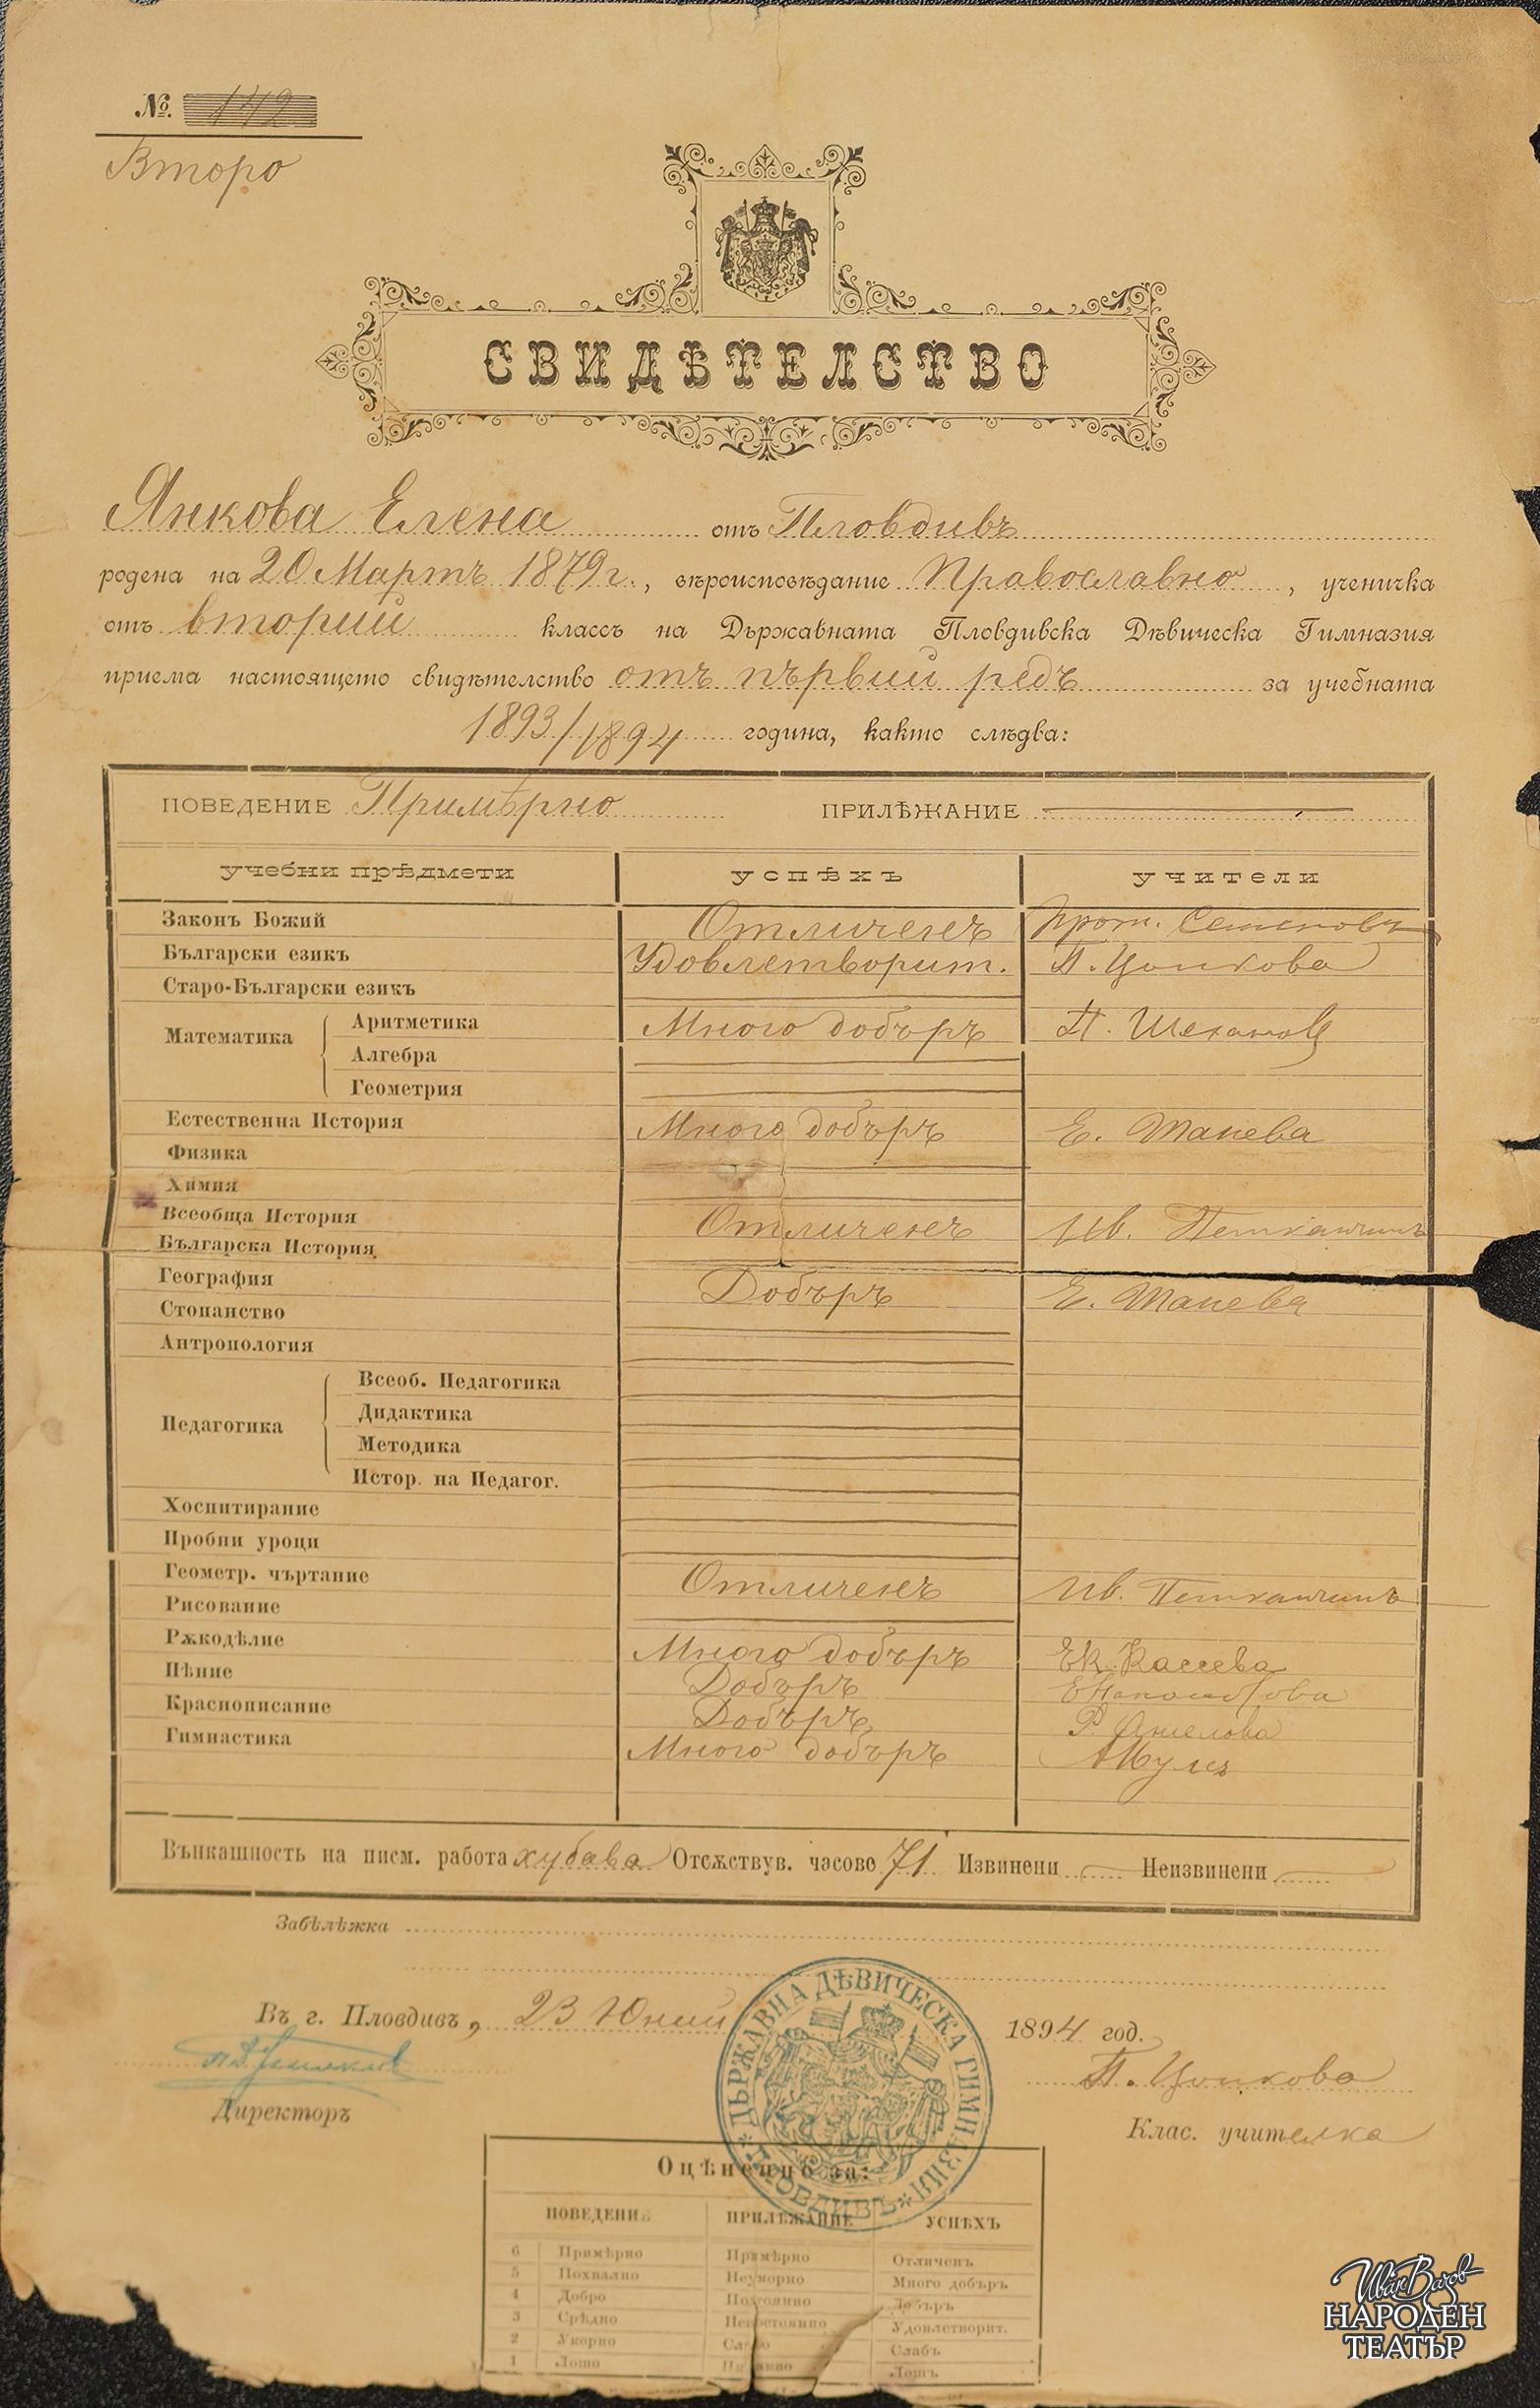 №. 142
Второ
СВИДѢТЕЛСТВО
Янкова Елена отъ Пловдивъ
родена на 20 Мартъ 1879 г., вѣроисповѣдание Православно, ученичка
отъ вторий классъ на Държавната Пловдивска Дѣвическа Гимназия
приема настоящето свидѣтелство отъ първий редъ за учебната
1893/1894 година, както слѣдва:
ПОВЕДЕНИЕ Примѣрно ПРИЛѢЖАНИЕ
учебни прѣдмети успѣхъ учители
Законъ Божий Отличенъ Прот. Семеновъ
Български езикъ Удовлетворит. П. Цонкова
Старо-Български езикъ
Математика
Аритметика Много добъръ П.
Алгебра
Геометрия
Естественна История Много добъръ Е. Танева
Физика
Химия
Всеобща История Отличенъ Ив. Петканчинъ
Българска История
География Добъръ Е. Танева
Стопанство
Антропология
Педагогика
Всеоб. Педагогика
Дидактика
Методика
Истор. на Педагог.
Хоспитирание
Пробни уроци
Геометр. чъртание Отличенъ Ив. Петканчинъ
Рисование
Рѫкодѣлие Много добъръ Ек. Касева
Пѣние Добъръ
Краснописание Добъръ Р. Ангелова
Гимнастика Много добъръ
Вънкашность на писм. работа хубава Отсѫтствув. часове 71 Извинени Неизвинени
Забѣлѣжка
Въ г. Пловдивъ, 23 Юний 1894 год.
П. Цонкова
Директоръ Клас. учителка
ДЪРЖАВНА ДѢВИЧЕСКА ГИМНАЗИЯ * ПЛОВДИВЪ *
Оцѣнено за:
ПОВЕДЕНИЕ ПРИЛѢЖАНИЕ УСПѢХЪ
6 Примѣрно Примѣрно Отличенъ
5 Похвално Неукорно Много добъръ
4 Добро Постоянно Добъръ
3 Срѣдно Непостоянно Удовлетворит.
2 Укорно Слабо Слабъ
1 Лошо Никакво Лошъ
Иван Вазов
НАРОДЕН
ТЕАТЪР